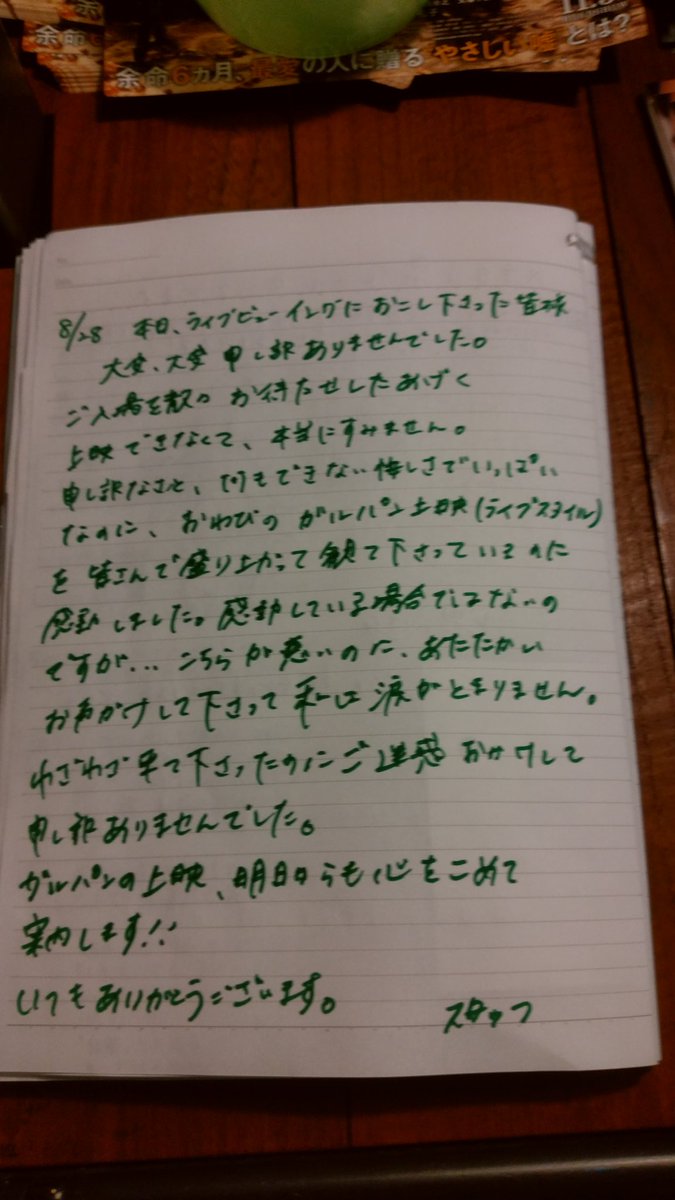 余命6カ月、最愛の人に贈る“やさしい嘘”とは?
余命
8/28 本日、ライブビューイングにおこし下さった皆様
大変、大変 申し訳ありませんでした。
ご入場を お待たせしたあげく
上映できなくて、本当にすみません。
申し訳なさと、何もできない悔しさでいっぱい
なのに、おわびの ガルパン上映(ライブスタイル)
を 皆さんで盛り上がって観て下さっているのに
感動しました。感動している場合ではないの
ですが… こちらが悪いのに、あたたかい
お声がけして下さって 私は 涙がとまりません。
わざわざ来て下さったのにご迷惑おかけして
申し訳ありませんでした。
ガルパンの上映、明日からも心をこめて
案内します!!
いつもありがとうございます。
スタッフ